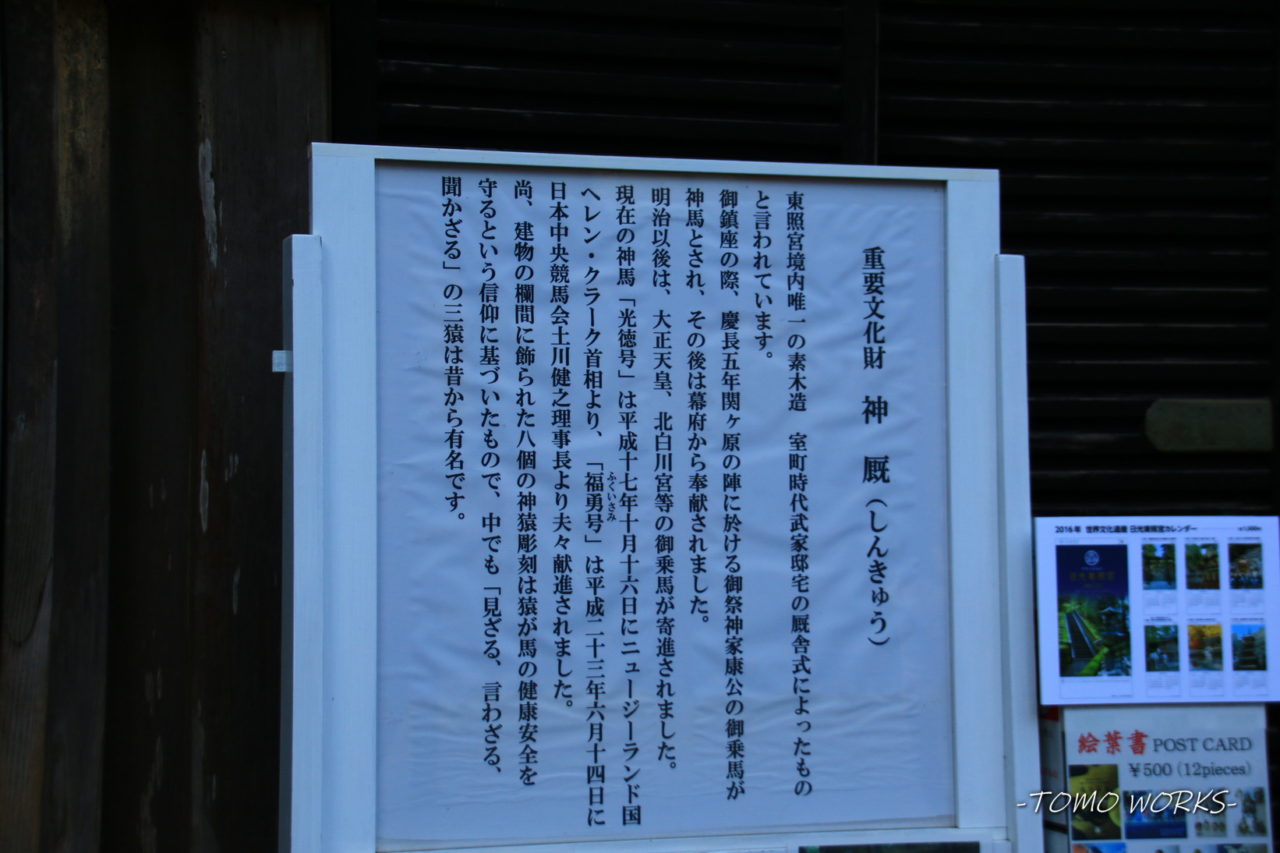 重要文化財　神　厩（しんきゅう）
東照宮境内唯一の素木造　室町時代武家邸宅の厩舎式によったもの
と言われています。
御鎮座の際、慶長五年関ヶ原の陣に於ける御祭神家康公の御乗馬が
神馬とされ、その後は幕府から奉献されました。
明治以後は、大正天皇、北白川宮等の御乗馬が寄進されました。
現在の神馬「光徳号」は平成十七年十月十六日にニュージーランド国
ヘレン・クラーク首相より、「福勇号」は平成二十三年六月十四日に
ふくいさみ
日本中央競馬会土川健之理事長より夫々献進されました。
尚、建物の欄間に飾られた八個の神猿彫刻は猿が馬の健康安全を
守るという信仰に基づいたもので、中でも「見ざる、言わざる、
聞かざる」の三猿は昔から有名です。
2016年 世界文化遺産 日光東照宮カレンダー
絵葉書 POST CARD
￥500 (12pieces)
-TOMO WORKS-